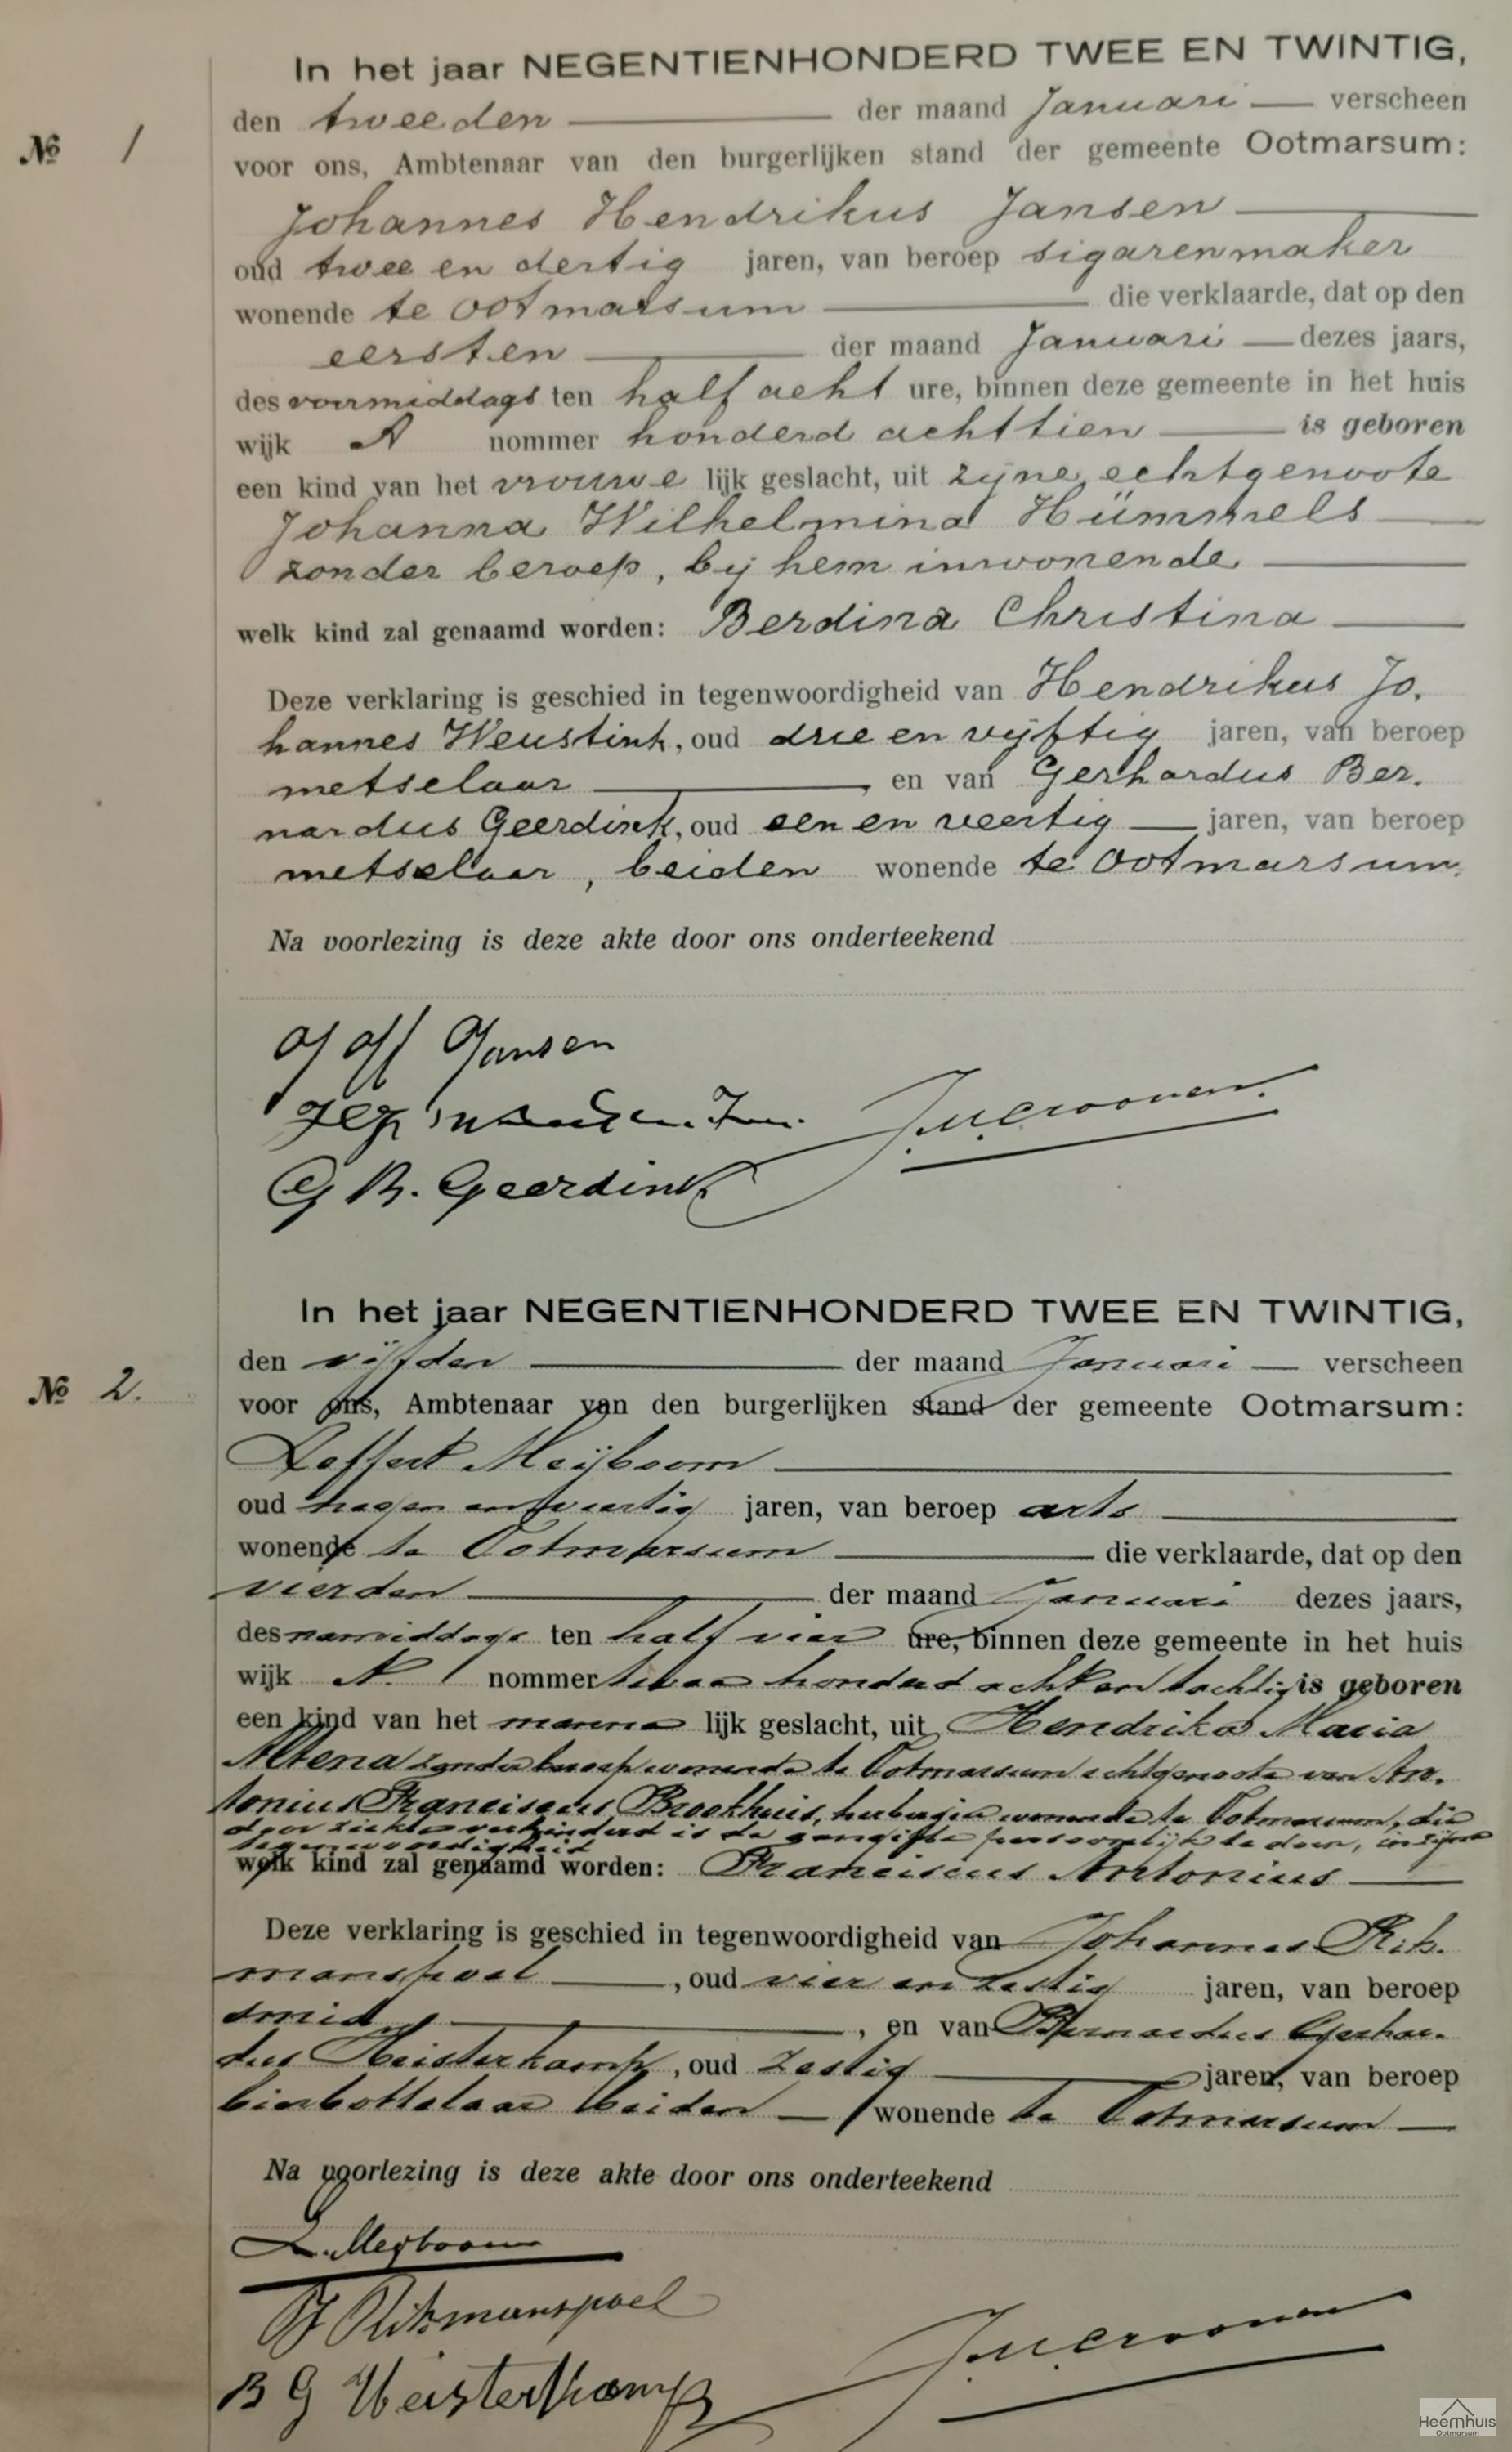 In het jaar NEGENTIENHONDERD TWEE EN TWINTIG,
den tweeden der maand Januari verscheen
№ 1
voor ons, Ambtenaar van den burgerlijken stand der gemeente Ootmarsum:
Johannes Hendrikus Jansen
oud twee en dertig jaren, van beroep sigarenmaker
wonende te Ootmarsum die verklaarde, dat op den
eersten der maand Januari dezes jaars,
des voormiddags ten half acht ure, binnen deze gemeente in het huis
wijk A nommer honderd achttien is geboren
een kind van het vrouwe lijk geslacht, uit zijne echtgenoote
Johanna Wilhelmina Hümmels
zonder beroep, bij hem inwonende
welk kind zal genaamd worden: Berdina Christina
Deze verklaring is geschied in tegenwoordigheid van Hendrikus Jo.
hannes Weustink, oud drie en vijftig jaren, van beroep
metselaar, en van Gerhardus Ber.
nardus Geerdink, oud een en veertig jaren, van beroep
metselaar, beiden wonende te Ootmarsum.
Na voorlezing is deze akte door ons onderteekend
J H Jansen
G B. Geerdink
In het jaar NEGENTIENHONDERD TWEE EN TWINTIG,
den vijfden der maand Januari verscheen
№ 2.
voor ons, Ambtenaar van den burgerlijken stand der gemeente Ootmarsum:
Leffert Meijboom
oud negen en veertig jaren, van beroep arts
wonende te Ootmarsum die verklaarde, dat op den
vierden der maand Januari dezes jaars,
des namiddags ten half vier ure, binnen deze gemeente in het huis
wijk A. nommer twee honderd acht en tachtig is geboren
een kind van het manne lijk geslacht, uit Hendrika Maria
Altena zonder beroep wonende te Ootmarsum echtgenoote van An.
tonius Franciscus Brookhuis, herbergier wonende te Ootmarsum, die
door ziekte verhinderd is de aangifte persoonlijk te doen, in zijne
tegenwoordigheid
welk kind zal genaamd worden: Franciscus Antonius
Deze verklaring is geschied in tegenwoordigheid van Johannes Rik.
manspoel, oud vier en zestig jaren, van beroep
smid, en van Bernardus Gerhar.
dus Heisterkamp, oud zestig jaren, van beroep
bierbottelaar beiden wonende te Ootmarsum
Na voorlezing is deze akte door ons onderteekend
L. Meyboom
J Rikmanspoel
B G Heisterkamp
Heemhuis
Ootmarsum